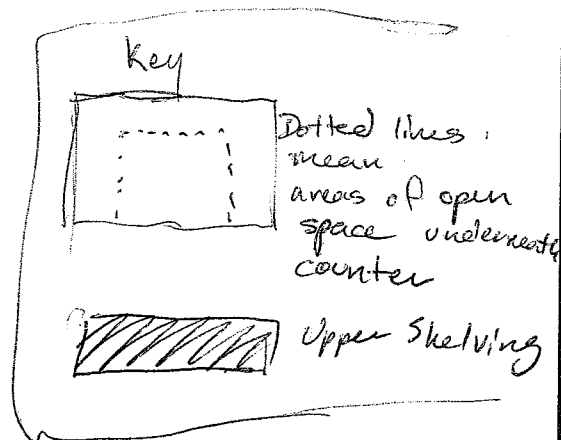 Key
Dotted lines
mean
areas of open
space underneath
counter
Upper Shelving